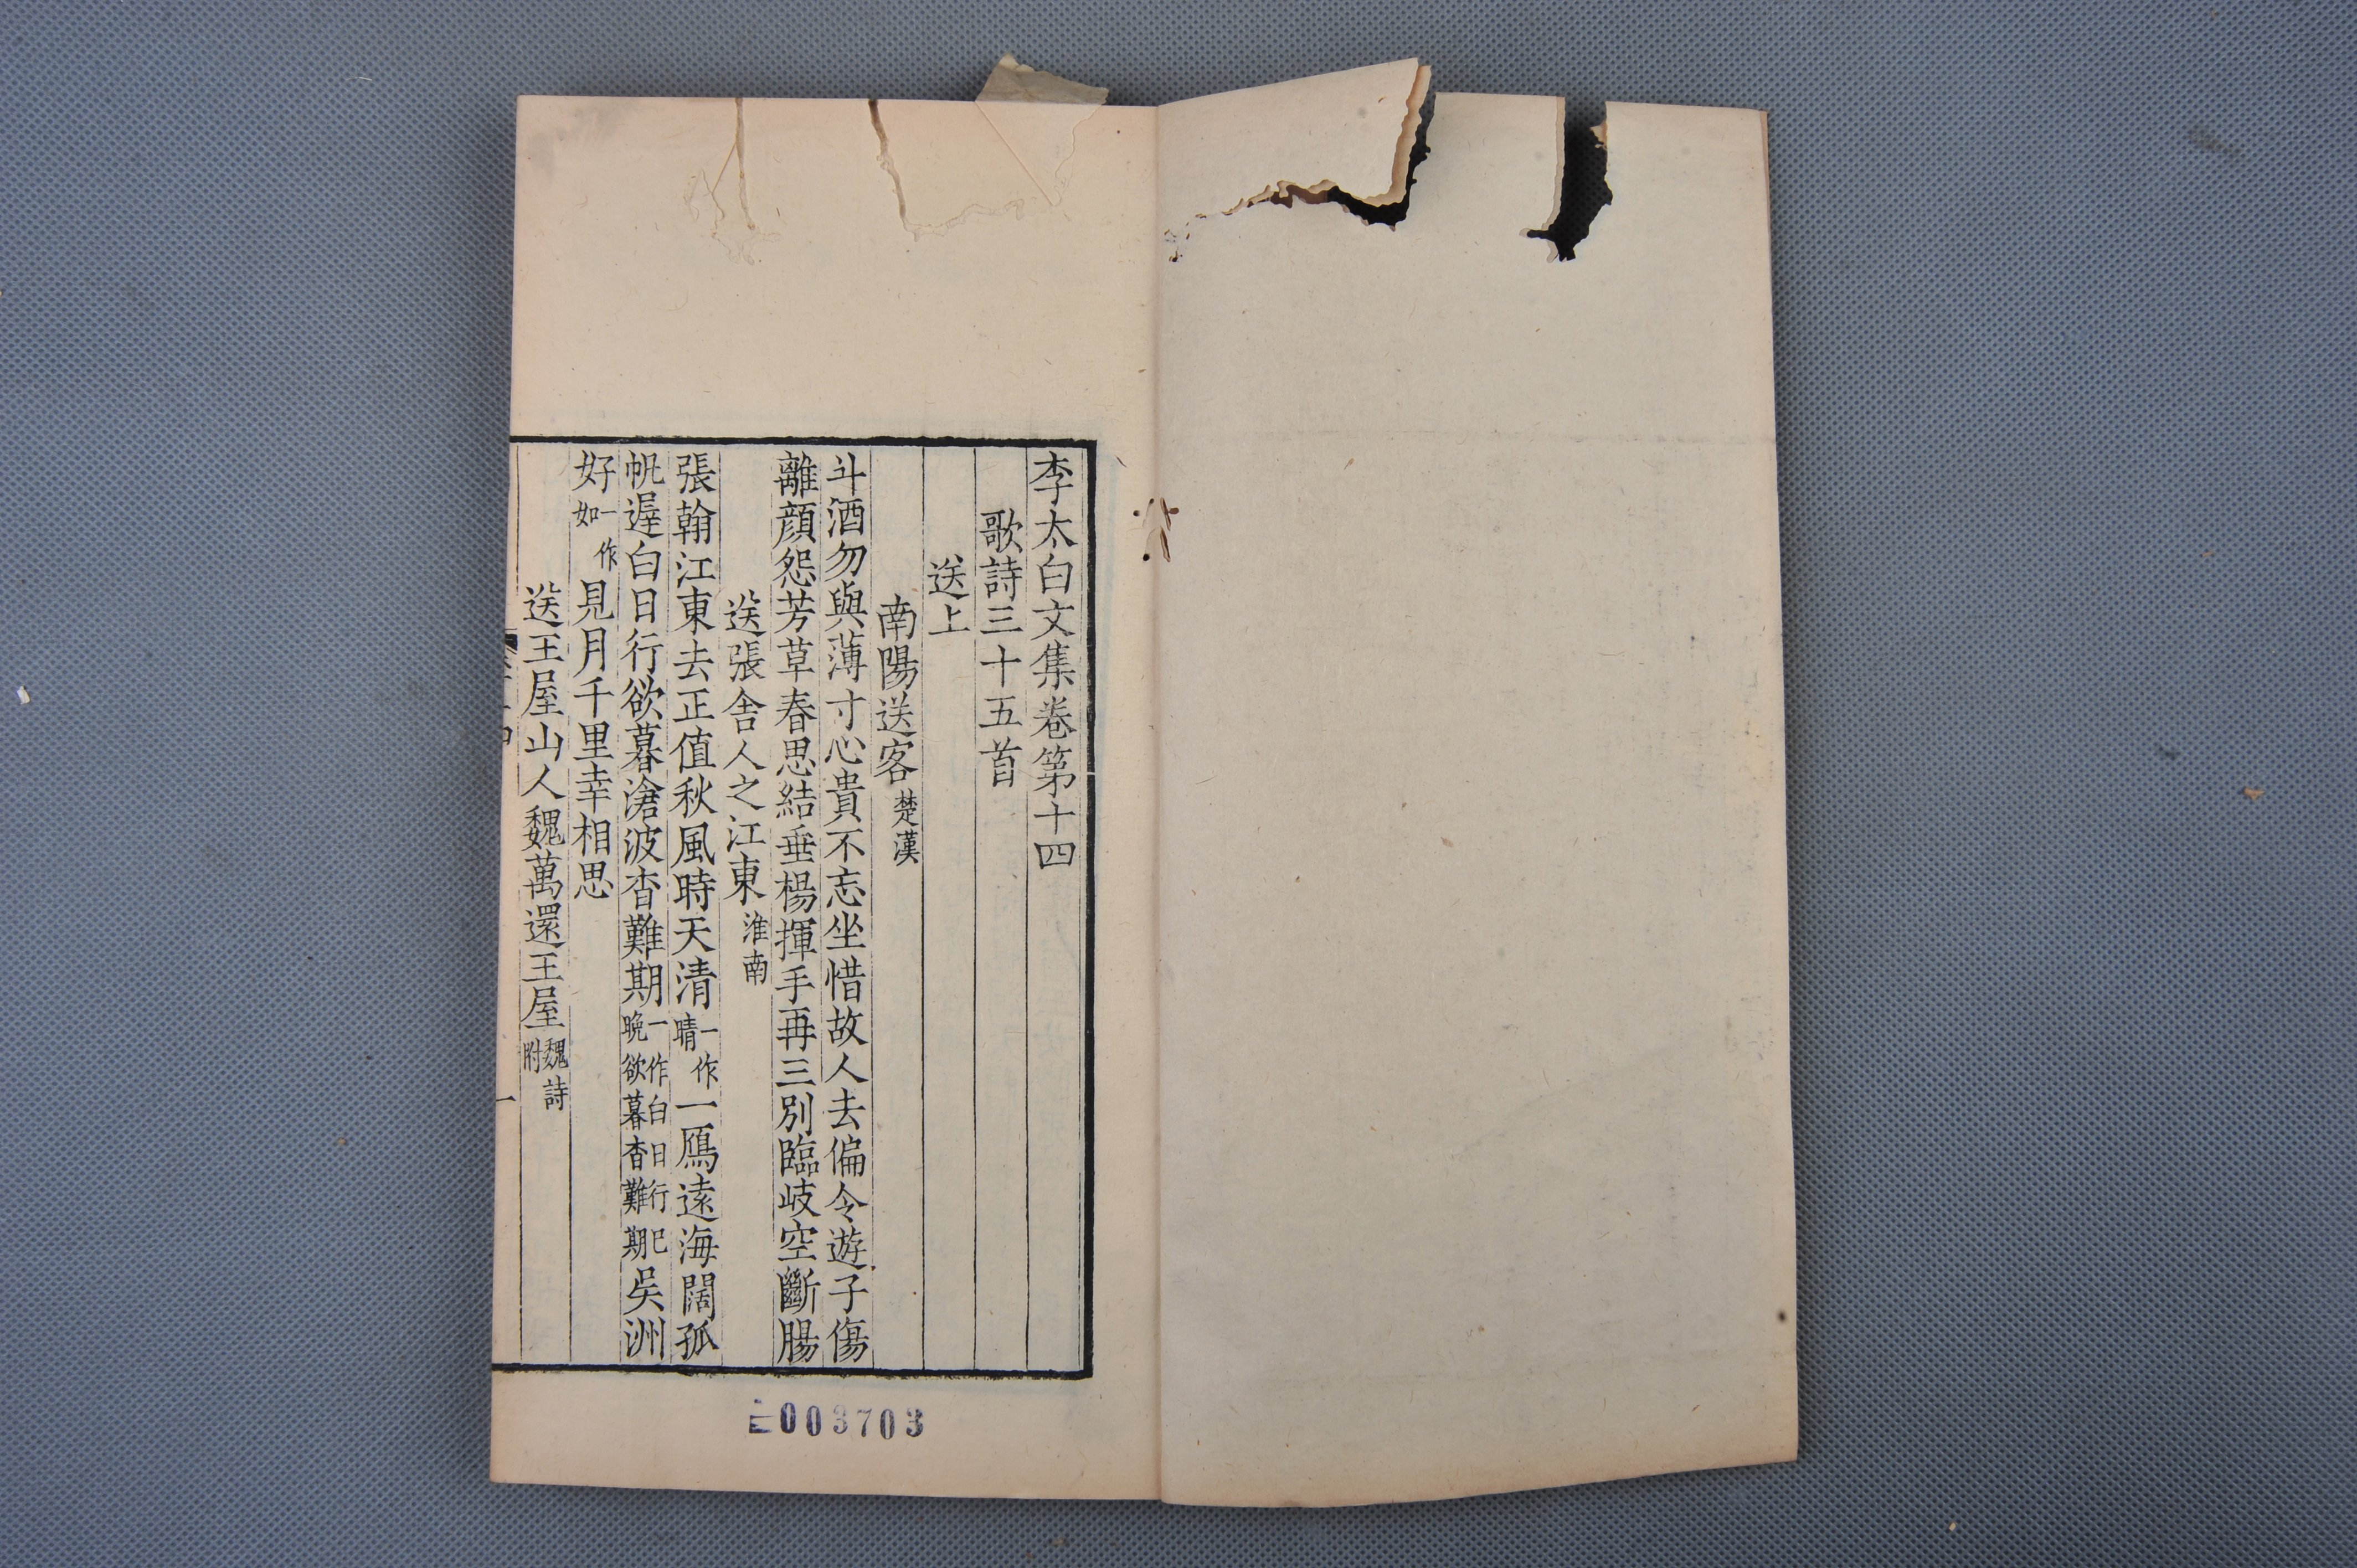 李太白文集卷第十四
歌詩三十五首
送上
南陽送客楚漢
斗酒勿與薄寸心貴不忘坐惜故人去偏令遊子傷
離顔怨芳草春思結垂楊揮手再三別臨歧空斷腸
送張舍人之江東淮南
張翰江東去正值秋風時天清一作晴一鴈逺海闊孤
帆遲白日行欲暮滄波杳難期一作白日行已晚欲暮杳難期吳洲
好一作如見月千里幸相思
送王屋山人魏萬還王屋魏詩附
一
003703